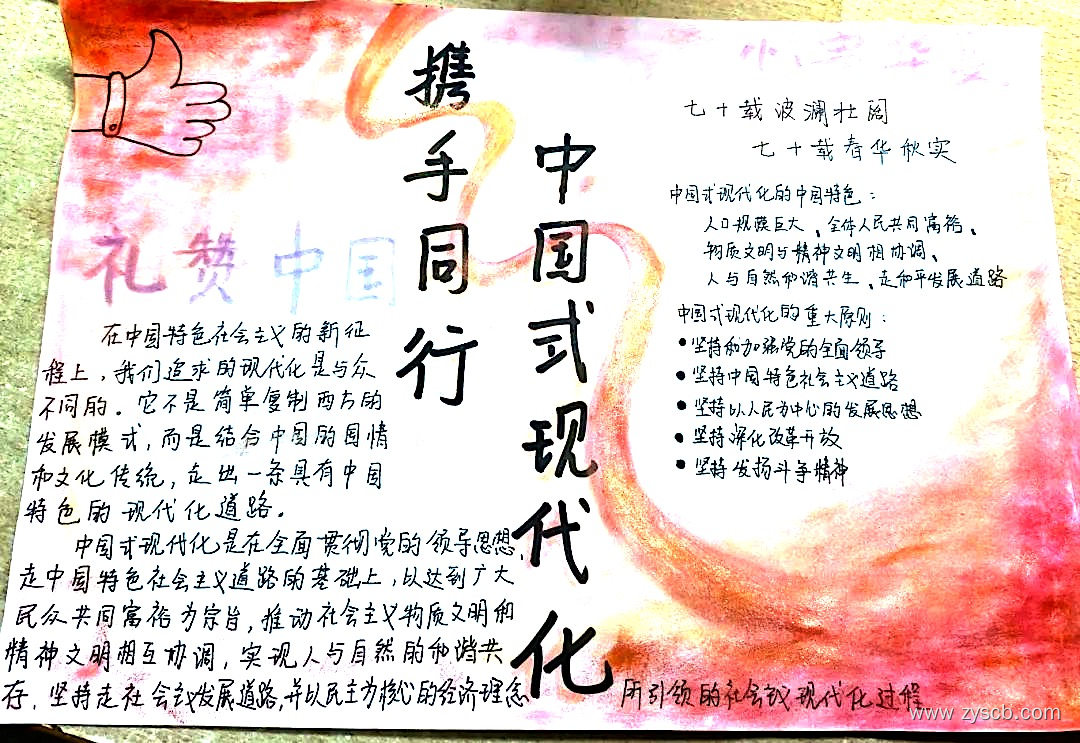 携手同行
中国式现代化
礼赞中国
在中国特色社会主义的新征
程上，我们追求的现代化是与众
不同的。它不是简单复制西方的
发展模式，而是结合中国的国情
和文化传统，走出一条具有中国
特色的现代化道路。
中国式现代化是在全面贯彻党的领导思想，
走中国特色社会主义道路的基础上，以达到广大
民众共同富裕为宗旨，推动社会主义物质文明和
精神文明相互协调，实现人与自然的和谐共
存，坚持走社会主义发展道路，并以民主为核心的经济理念
所引领的社会主义现代化过程
七十载波澜壮阔
七十载春华秋实
中国式现代化的中国特色：
人口规模巨大、全体人民共同富裕、
物质文明与精神文明相协调、
人与自然和谐共生、走和平发展道路
中国式现代化的重大原则：
•坚持和加强党的全面领导
•坚持中国特色社会主义道路
•坚持以人民为中心的发展思想
•坚持深化改革开放
•坚持发扬斗争精神
www.zyscb.com